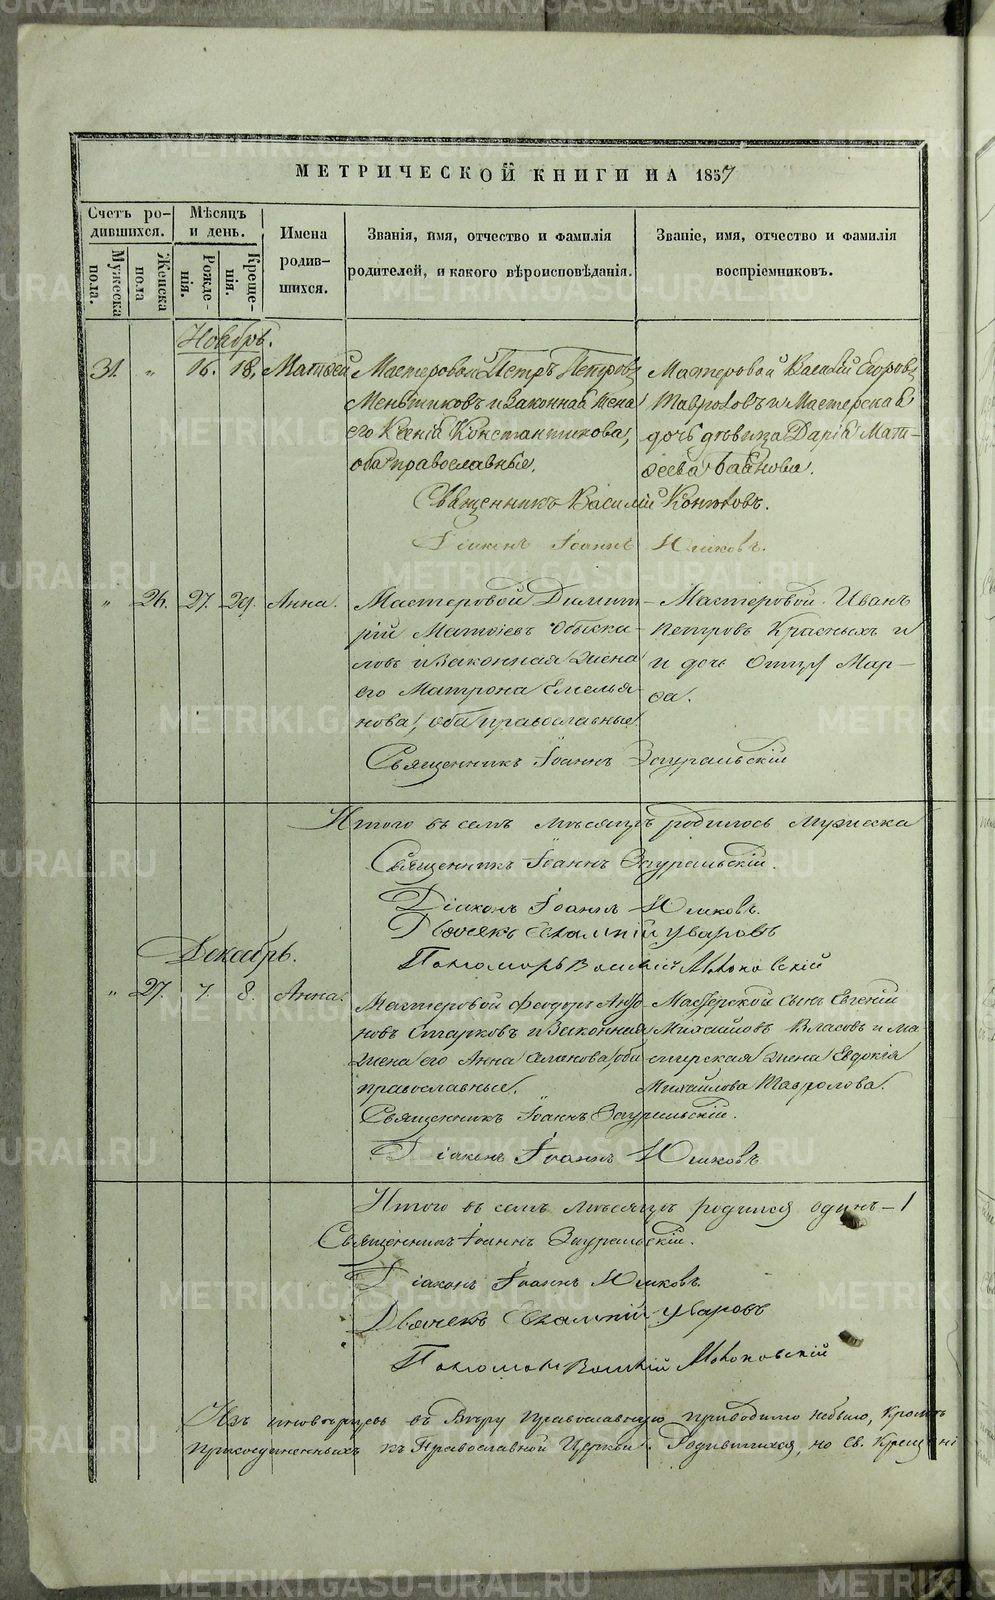 МЕТРИЧЕСКОЙ КНИГИ НА 1857
Счетъ ро-
дившихся.
Мужеска
пола.
Женска
пола
Мѣсяцъ
и день.
Рожде-
нія.
Креще-
нія.
Имена
родив-
шихся.
Званія, имя, отчество и фамилія
родителей, и какого вѣроисповѣданія.
Званіе, имя, отчество и фамилія
воспріемниковъ.
Ноябрь.
31. „ 16. 18. Матѳей
Мастеровой Петръ Петровъ
Меньшиковъ и законная жена
его Ксенія Константинова,
оба православные.
Мастеровой Василій Егоровъ
Тавроловъ и Мастерская
дочь дѣвица Дарія Мат-
ѳеева
Священникъ Василій
Діаконъ Іоаннъ Юшковъ.
„ 26. 27. 29. Анна.
Мастеровой Димит-
рій Матѳіевъ
ловъ и законная жена
его Матрона Емелья
нова, оба православные
Мастеровой Иванъ
Петровъ Красныхъ и
и дочь Мар-
ѳа.
Священникъ Іоаннъ Зауральскій
Итого въ семъ мѣсяцѣ родилось мужеска
Священникъ Іоаннъ Зауральскій.
Діаконъ Іоаннъ Юшковъ.
Дьячекъ Евлампій Уваровъ
Пономарь Василій
Декабрь.
„ 27. 7. 8. Анна.
Мастеровой Феодоръ
новъ Старковъ и законная
жена его Анна оба
православные.
Мастерской сынъ Евгеній
Михайловъ Власовъ и Ма-
стерская жена Евдокія
Михайлова Тавролова.
Священникъ Іоаннъ Зауральскій.
Діаконъ Іоаннъ Юшковъ
Итого въ семъ мѣсяцѣ родился одинъ – 1
Священникъ Іоаннъ Зауральскій.
Діаконъ Іоаннъ Юшковъ.
Дьячекъ Евлампій Уваровъ
Пономарь Василій
Изъ иновѣрцевъ въ Вѣру Православную приводимо небыло, кромѣ
присоединенныхъ къ Православной Церкви. Родившихся, но Св. Крещені
METRIKI.GASO-URAL.RU